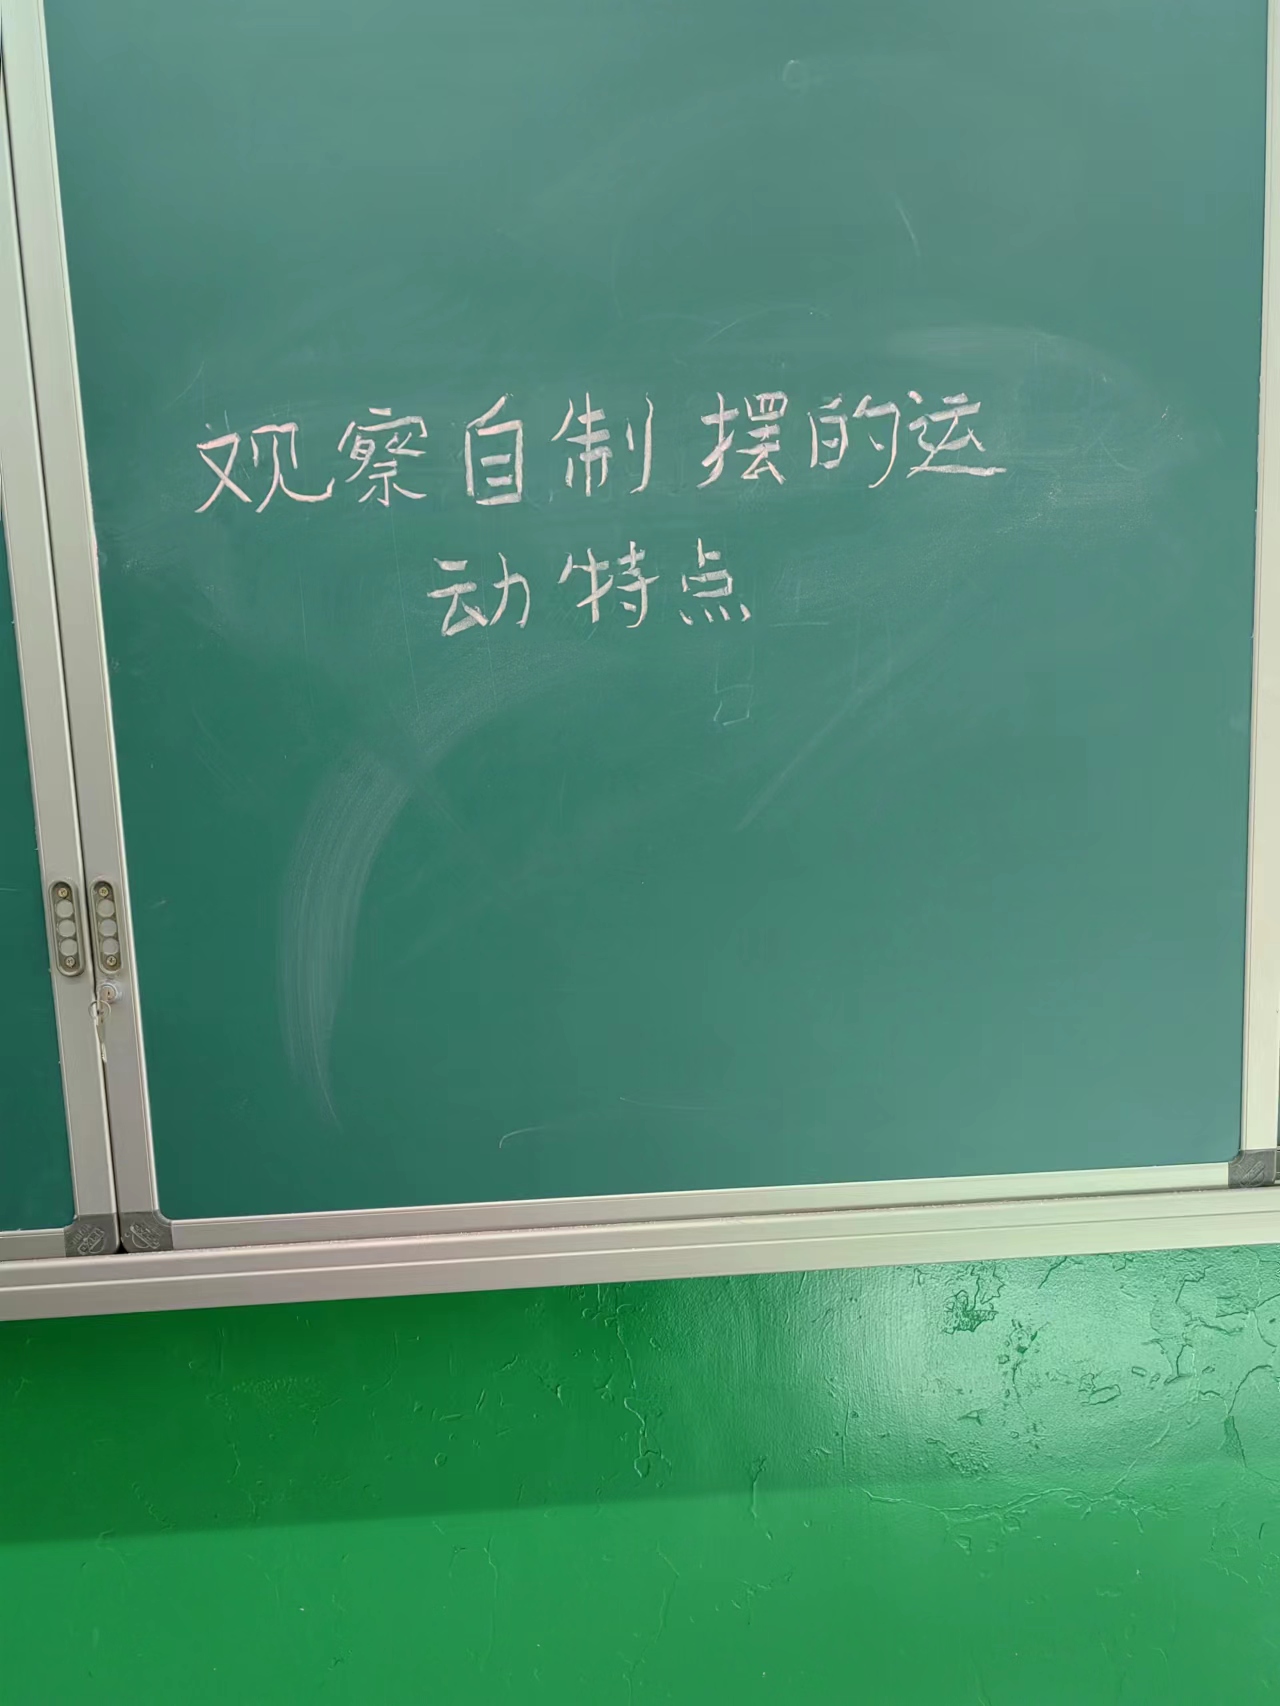 观察自制摆的运
动特点